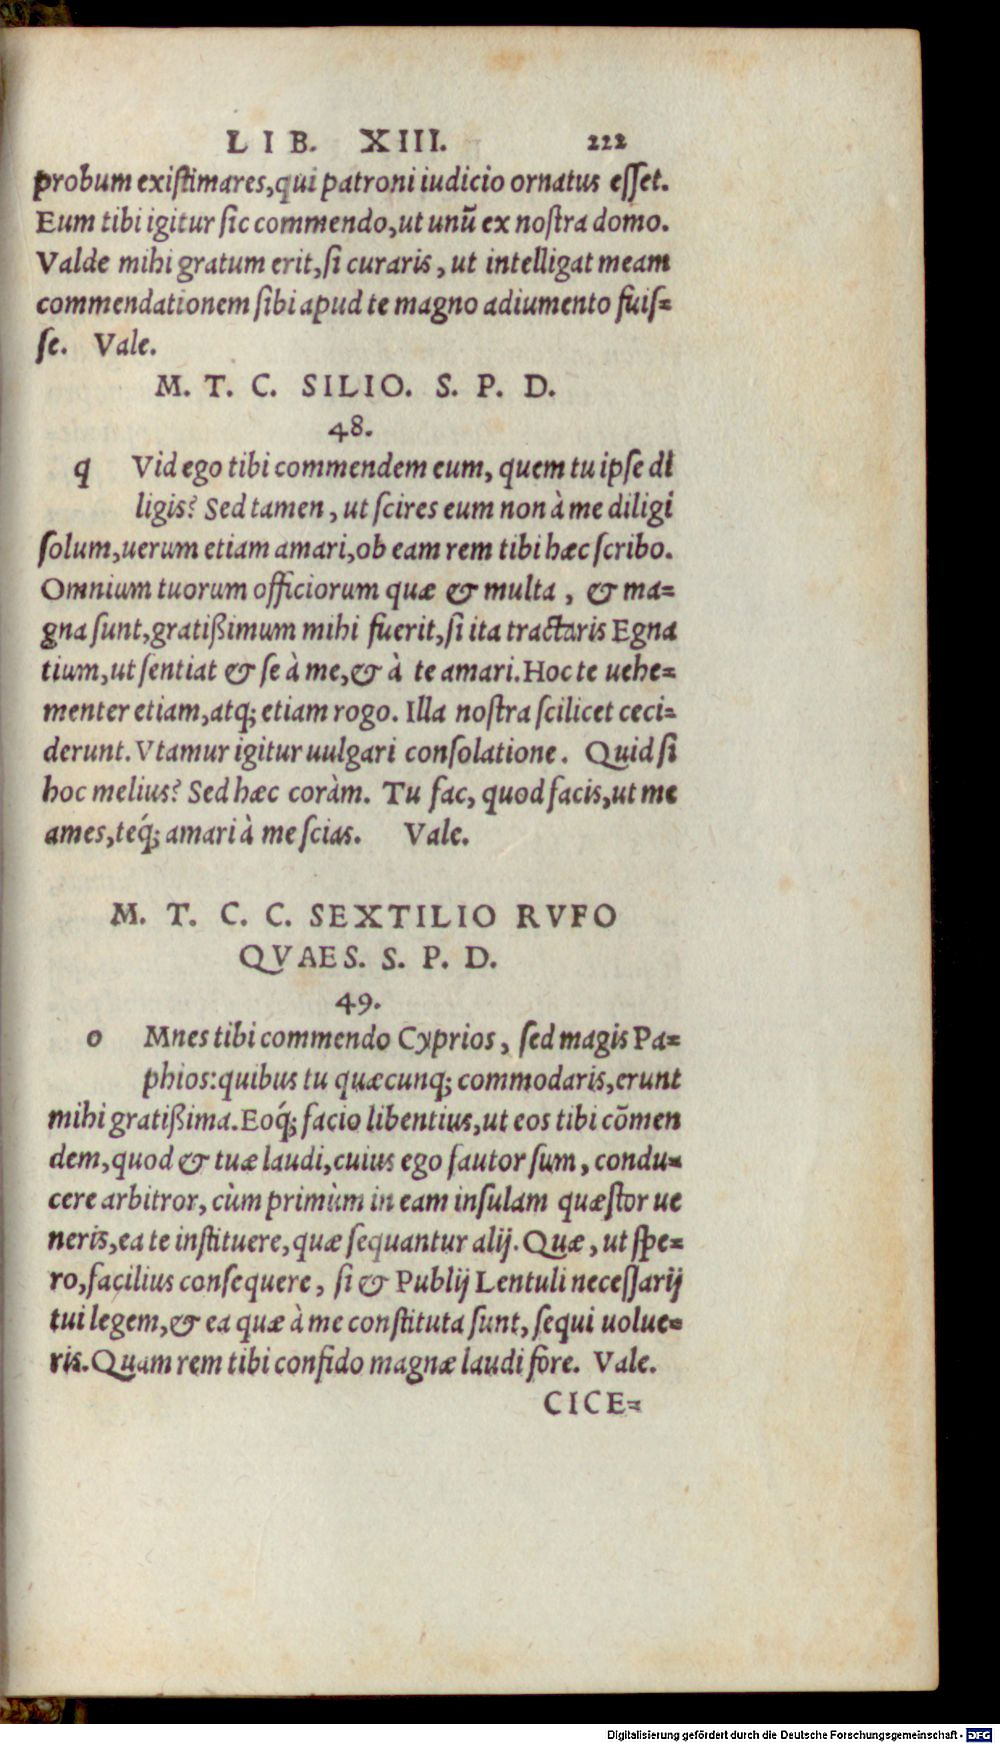 LIB. XIII. 222
probum existimares, qui patroni iudicio ornatus esset.
Eum tibi igitur sic commendo, ut unũ ex nostra domo.
Valde mihi gratum erit, si curaris, ut intelligat meam
commendationem sibi apud te magno adiumento fuis=
se. Vale.
M. T. C. SILIO. S. P. D.
48.
q Vid ego tibi commendem eum, quem tu ipse di
ligis? Sed tamen, ut scires eum non à me diligi
solum, uerum etiam amari, ob eam rem tibi hæc scribo.
Omnium tuorum officiorum quæ & multa, & ma=
gna sunt, gratißimum mihi fuerit, si ita tractaris Egna
tium, ut sentiat & se à me, & à te amari. Hoc te uehe=
menter etiam, atq; etiam rogo. Illa nostra scilicet ceci=
derunt. Vtamur igitur uulgari consolatione. Quid si
hoc melius? Sed hæc coràm. Tu fac, quod facis, ut me
ames, teq́; amari à me scias. Vale.
M. T. C. C. SEXTILIO RVFO
QVAES. S. P. D.
49.
o Mnes tibi commendo Cyprios, sed magis Pa=
phios: quibus tu quæcunq; commodaris, erunt
mihi gratißima. Eoq́; facio libentius, ut eos tibi cõmen
dem, quod & tuæ laudi, cuius ego fautor sum, condu=
cere arbitror, cùm primùm in eam insulam quæstor ue
neris, ea te instituere, quæ sequantur alij. Quæ, ut spe=
ro, facilius consequere, si & Publij Lentuli necessarij
tui legem, & ea quæ à me constituta sunt, sequi uolue=
ris. Quam rem tibi confido magnæ laudi fore. Vale.
CICE=
Digitalisierung gefördert durch die Deutsche Forschungsgemeinschaft - DFG